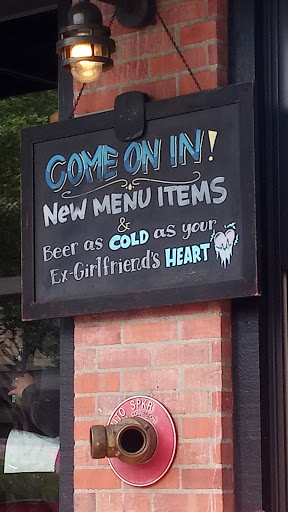 COME ON IN!
NEW MENU ITEMS
&
Beer as COLD as your
Ex-Girlfriend's HEART
AUTO SPKR